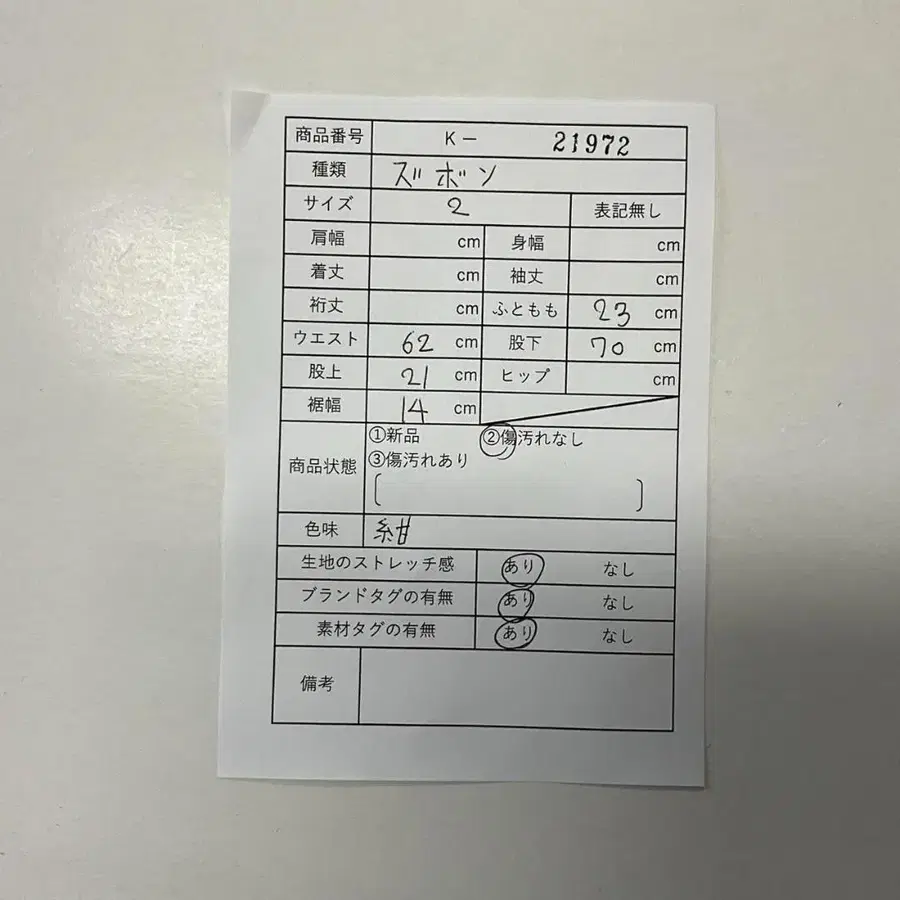 商品番号 K- 21972
種類 ズボン
サイズ 2 表記無し
肩幅 cm 身幅 cm
着丈 cm 袖丈 cm
裄丈 cm ふともも 23 cm
ウエスト 62 cm 股下 70 cm
股上 21 cm ヒップ cm
裾幅 14 cm
①新品 ②傷汚れなし
商品状態 ③傷汚れあり
[ ]
色味 紺
生地のストレッチ感 あり なし
ブランドタグの有無 あり なし
素材タグの有無 あり なし
備考